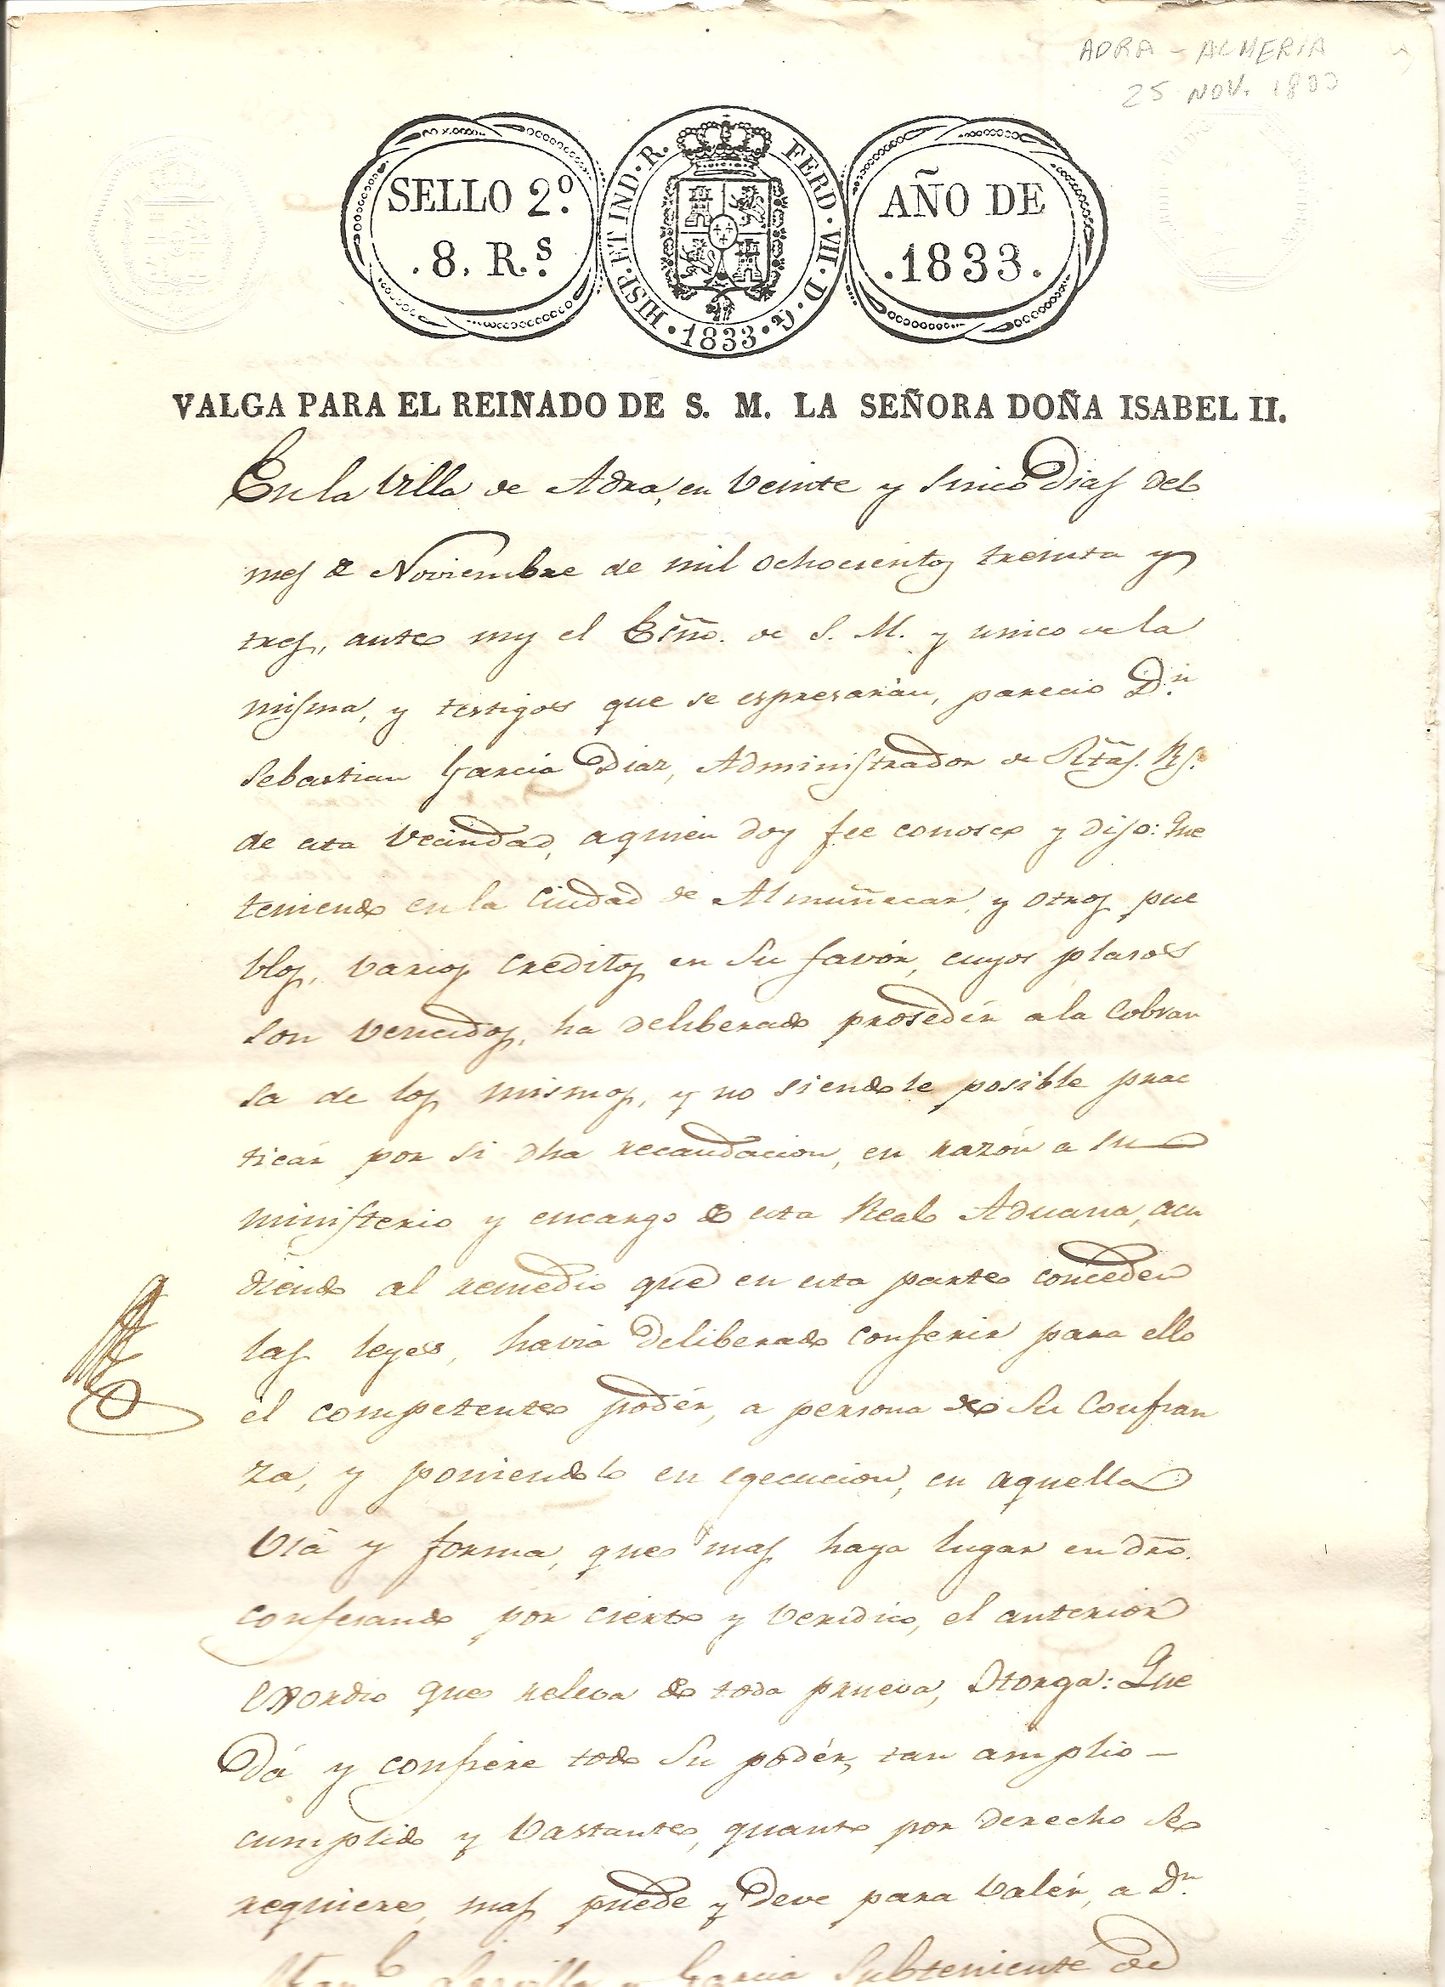 ADRA - ALMERIA
25 NOV. 1833
SELLO 2º.
.8. R.s
HISP. ET IND. R. FERD. VII. D. G.
.1833.
AÑO DE
.1833.
VALGA PARA EL REINADO DE S. M. LA SEÑORA DOÑA ISABEL II.
En la Villa de Adra, en Veinte y sinco Dias del
mes de Noviembre de mil ochocientos treinta y
tres, ante my el Esño. de S. M. y unico de la
misma, y testigos que se espresarán, parecio Dn.
Sebastian Garcia Diaz, Administrador de Rtas. Rs.
de esta Vecindad, aquien doy fee conosco y dijo: Que
teniendo en la Ciudad de Almuñecar, y otros pue
blos, varios creditos en su favór, cuyos plasos
son vencidos, ha deliberado prosedér a la cobran
sa de los mismos, y no siendole posible prac
ticár por si dha recaudacion, en razón a su
ministerio y encargo de esta Real Aduana, acu
diendo al remedio que en esta parte conceden
las leyes, havia deliberado conferir para ello
el competente podér, a persona de su confian
za, y poniendolo en egecucion, en aquella
via y forma, que mas haya lugar en dro.
confesando por cierto y veridico, el anterior
exordio que releva de toda prueva, Otorga: Que
dá y confiere todo su podér, tan amplio -
cumplido y vastante, quanto por derecho se
requiere, mas puede y deve para valér, a Dn.
Garcia Subteniente de